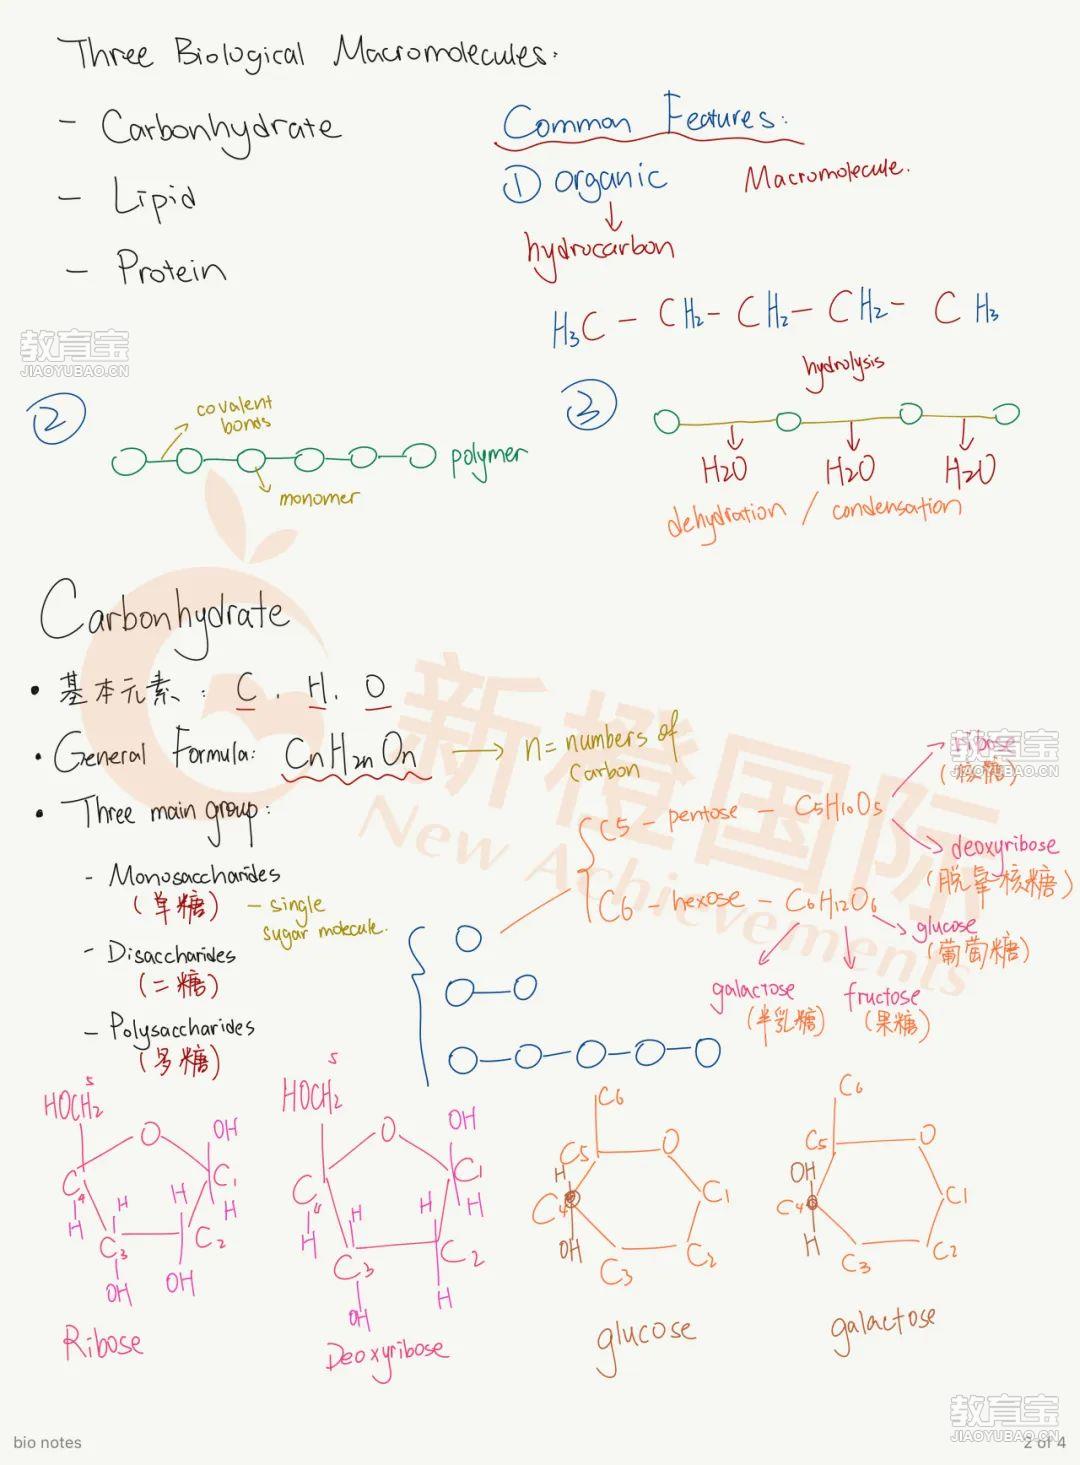 Three Biological Macromolecules:
- Carbonhydrate
- Lipid
- Protein
Common Features:
① organic
Macromolecule.
hydrocarbon
H3C - CH2 - CH2 - CH2 - CH3
教育宝
JIAOYUBAO.CN
②
covalent
bonds
polymer
monomer
③
hydrolysis
H2O H2O H2O
dehydration / condensation
Carbonhydrate
• 基本元素: C, H, O
• General Formula: CnH2nOn → n = numbers of
Carbon
• Three main group:
- Monosaccharides
(单糖) - single
sugar molecule.
- Disaccharides
(二糖)
- Polysaccharides
(多糖)
C5 - pentose - C5H10O5
ribose
(核糖)
deoxyribose
(脱氧核糖)
C6 - hexose - C6H12O6
glucose
(葡萄糖)
galactose
(半乳糖)
fructose
(果糖)
教育宝
JIAOYUBAO.CN
新橙国际
New Achievements
HOCH2 5
O
OH
C1
H
C4
H
H
H
C3
C2
OH
OH
Ribose
HOCH2 5
O
OH
C1
H
C4
H
H
H
C3
C2
OH
H
Deoxyribose
C6
C5
O
H
C4
C1
OH
C3
C2
glucose
C6
C5
O
OH
C4
C1
H
C3
C2
galactose
教育宝
JIAOYUBAO.CN
bio notes
2 of 4